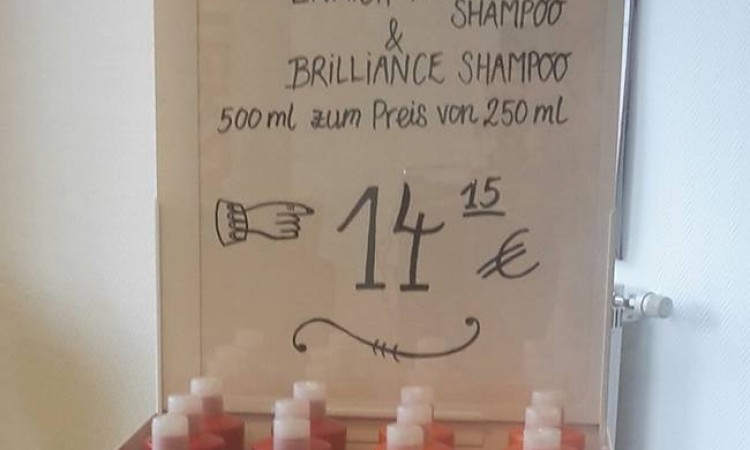 SHAMPOO
&
BRILLIANCE SHAMPOO
500 ml zum Preis von 250 ml
14 15 €